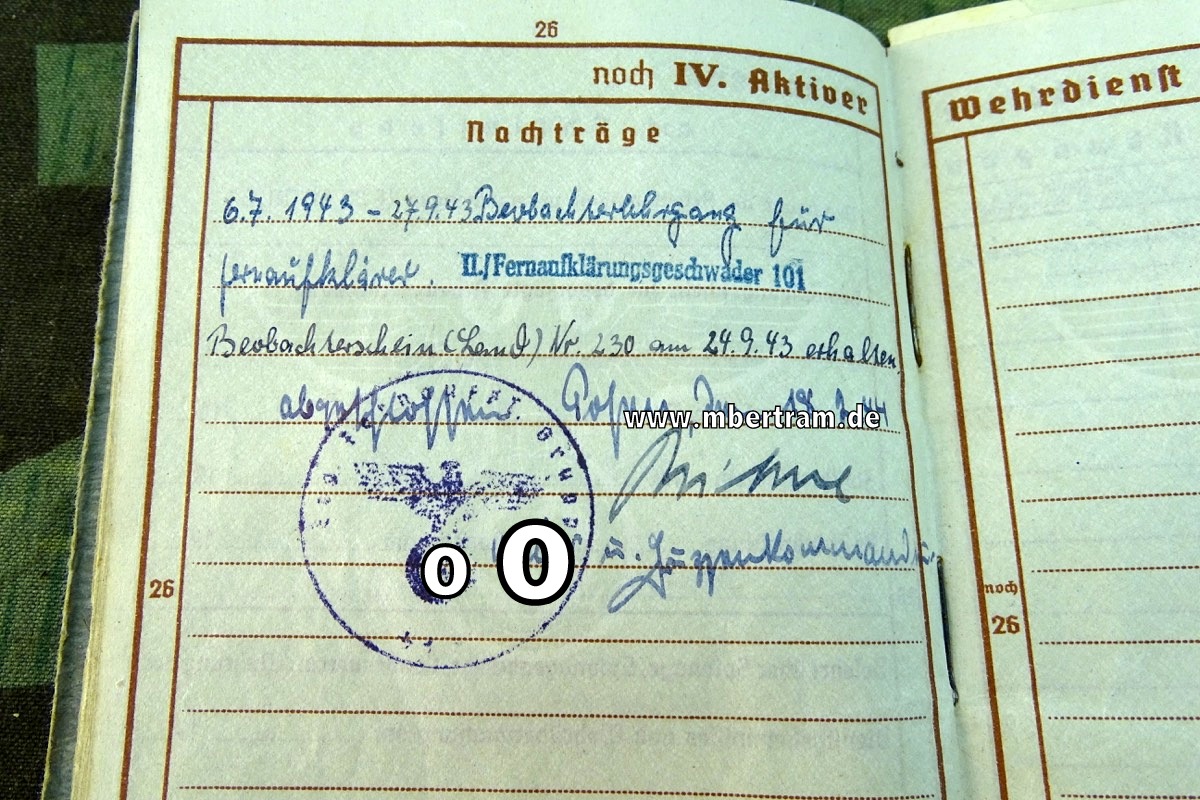 26
noch IV. Aktiver
Nachträge
6.7. 1943 - 27.9.43 Beobachterlehrgang für
Fernaufklärer. II./Fernaufklärungsgeschwader 101
Beobachterschein (Land) Nr. 230 am 24.9.43 erhalten.
abgeschlossen. Posen, den
www.mbertram.de
u. Gruppenkommandeur
26
Wehrdienst
noch
26